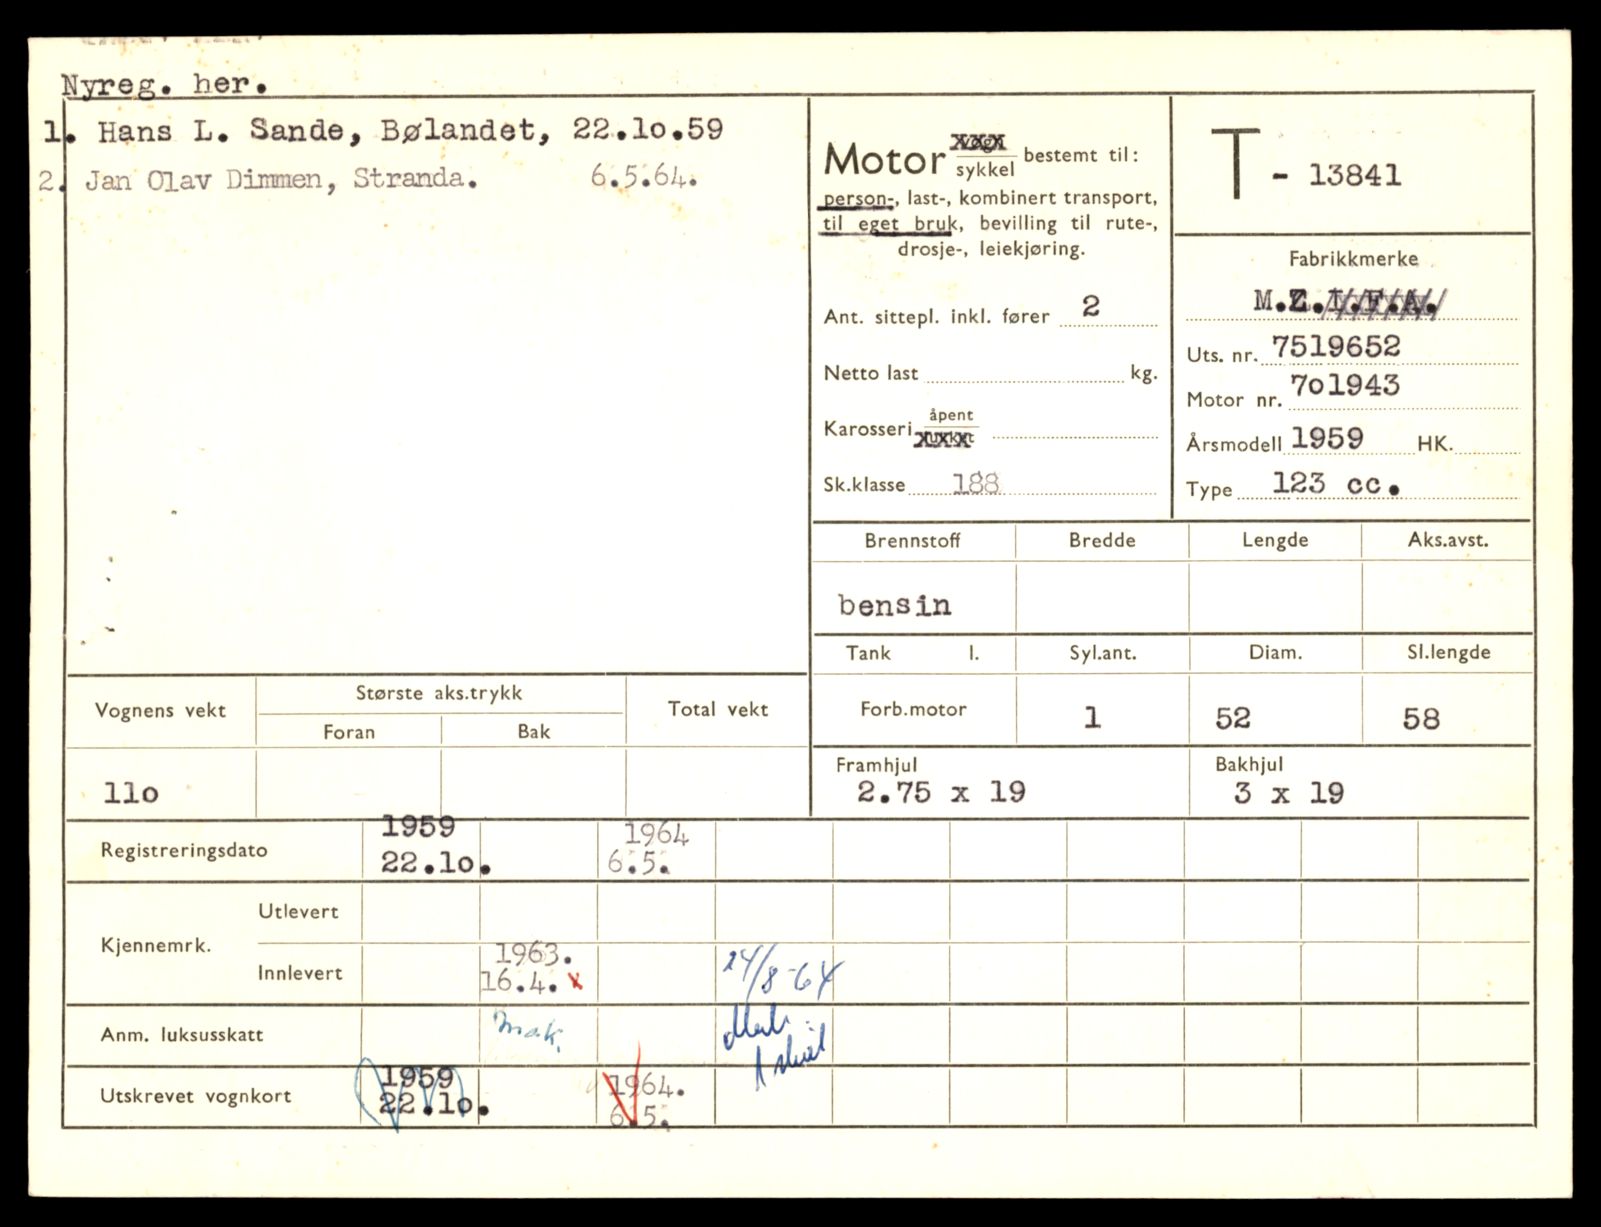 Nyreg. her.
1. Hans L. Sande, Bølandet, 22.1o.59
2. Jan Olav Dimmen, Stranda. 6.5.64.
Motor sykkel bestemt til:
person-, last-, kombinert transport,
til eget bruk, bevilling til rute-,
drosje-, leiekjøring.
Ant. sittepl. inkl. fører 2
Netto last kg.
Karosseri åpent
Sk.klasse 188
T - 13841
Fabrikkmerke
M.Z.I.F.A.
Uts. nr. 7519652
Motor nr. 7o1943
Årsmodell 1959 HK.
Type 123 cc.
Brennstoff Bredde Lengde Aks.avst.
bensin
Tank l. Syl.ant. Diam. Sl.lengde
Forb.motor 1 52 58
Framhjul Bakhjul
2.75 x 19 3 x 19
Vognens vekt Største aks.trykk Total vekt
Foran Bak
11o
Registreringsdato 1959 1964
22.1o. 6.5.
Kjennemrk. Utlevert
Innlevert 1963. 24/8-64
16.4. x
Anm. luksusskatt mak.
Utskrevet vognkort 1959 1964.
22.1o. 6.5.